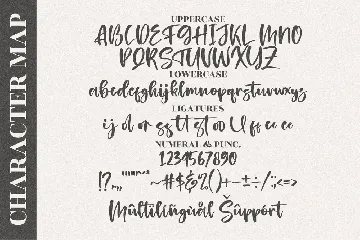 CHARACTER MAP
UPPERCASE
ABCDEFGHIJKL MNO
PQRSTUVWXYZ
LOWERCASE
abcdefghijklmnopqrstuvwxyz
LIGATURES
ij d or ss tt st oo ll ff ee cc
NUMERAL & PUNC.
1234567890
~#$&%()+-±÷/:;<=>
Multilingual Šupport